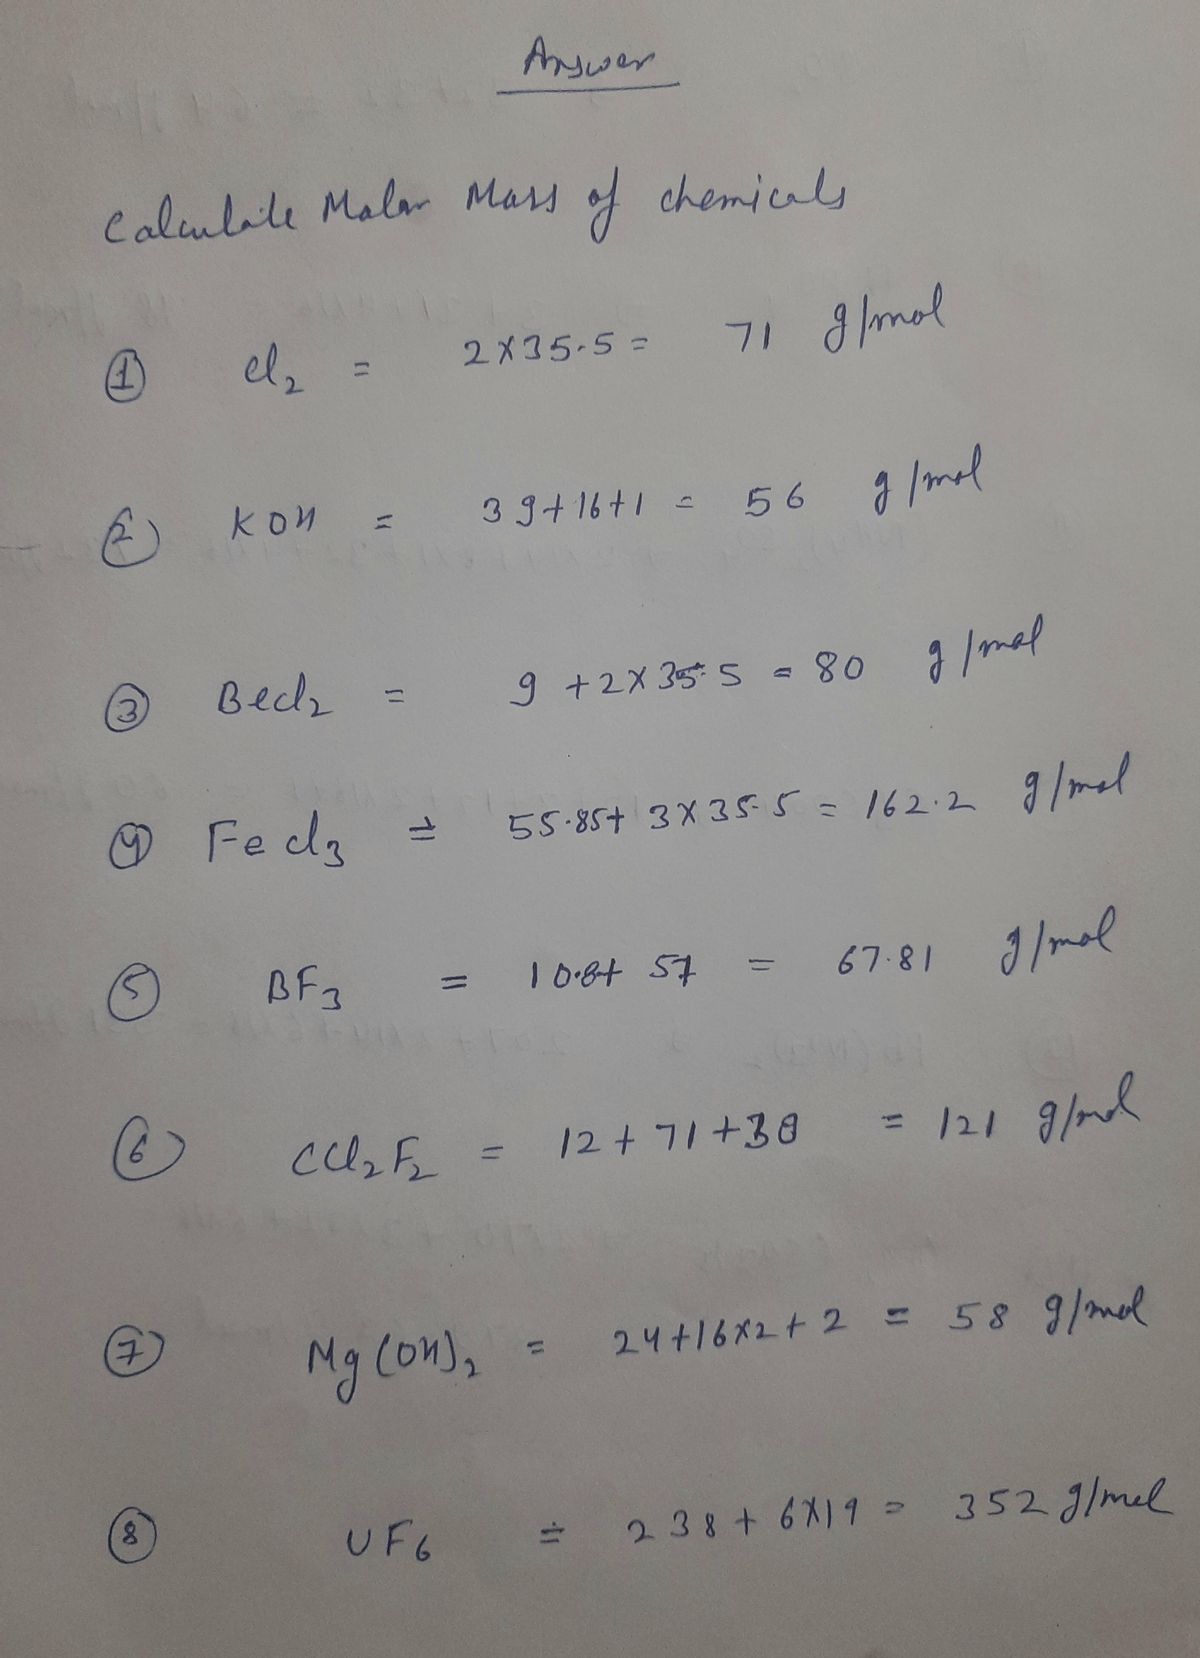 Answer
Calculate Molar Mass of chemicals
① Cl₂ = 2×35.5 = 71 g/mol
② KOH = 39+16+1 = 56 g/mol
③ BeCl₂ = 9+2×35.5 = 80 g/mol
④ FeCl₃ = 55.85+3×35.5 = 162.2 g/mol
⑤ BF₃ = 10.8+57 = 67.81 g/mol
⑥ CCl₂F₂ = 12+71+38 = 121 g/mol
⑦ Mg(OH)₂ = 24+16×2+2 = 58 g/mol
⑧ UF₆ = 238+6×19 = 352 g/mol